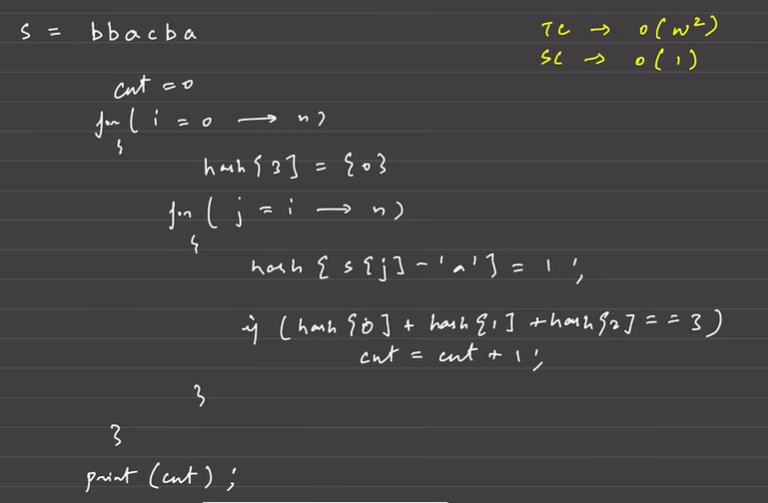 s = bbacba
TC → O(n²)
SC → O(1)
cnt = 0
for( i = 0 → n)
{
hash[3] = {0}
for( j = i → n)
{
hash[s[j]-'a'] = 1;
if (hash[0] + hash[1] + hash[2] == 3)
cnt = cnt + 1;
}
}
print(cnt);